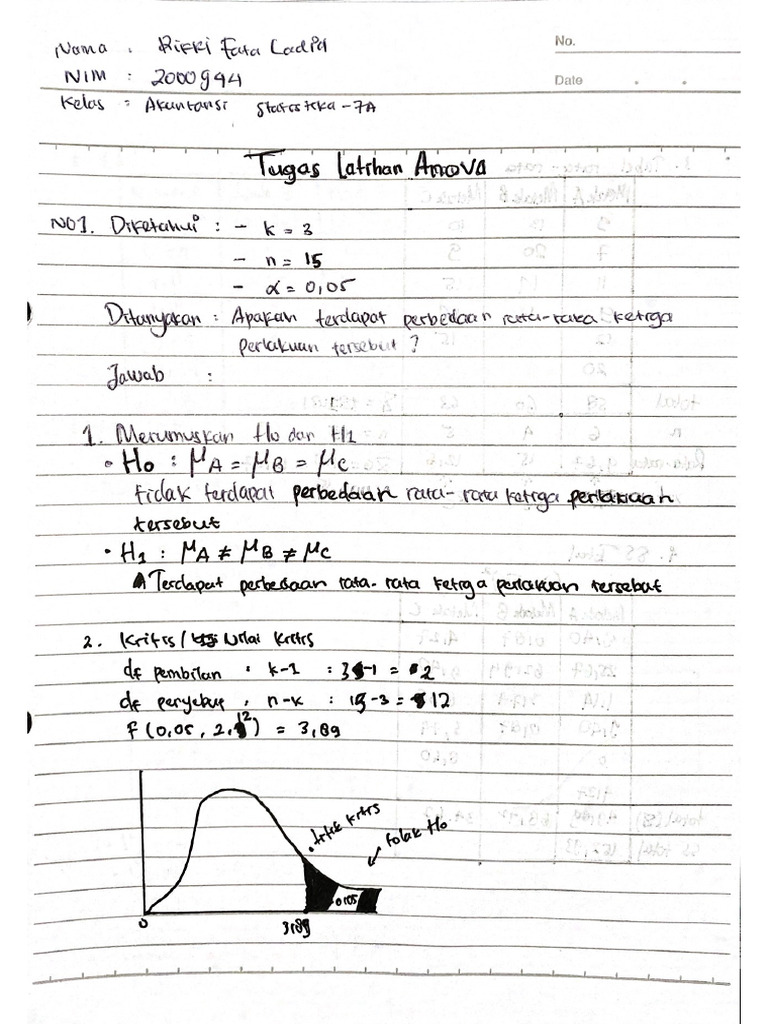 Nama : Rifki Fata Ladid
No.
NIM : 2000944
Date . .
Kelas : Akuntansi Statistika-7A
Tugas Latihan Anova
NO1. Diketahui : - k = 3
- n = 15
- α = 0,05
Ditanyakan : Apakah terdapat perbedaan rata-rata ketiga
perlakuan tersebut ?
Jawab :
1. Merumuskan Ho dan H1
• Ho : μA = μB = μC
tidak terdapat perbedaan rata-rata ketiga perlakuan
tersebut
• H1 : μA ≠ μB ≠ μC
Terdapat perbedaan rata-rata ketiga perlakuan tersebut
2. Kritis / Nilai kritis
df pembilan : k-1 : 3-1 = 2
df penyebut : n-k : 15-3 = 12
F (0,05, 2, 12) = 3,89
titik kritis
tolak Ho
0,05
0
3,89